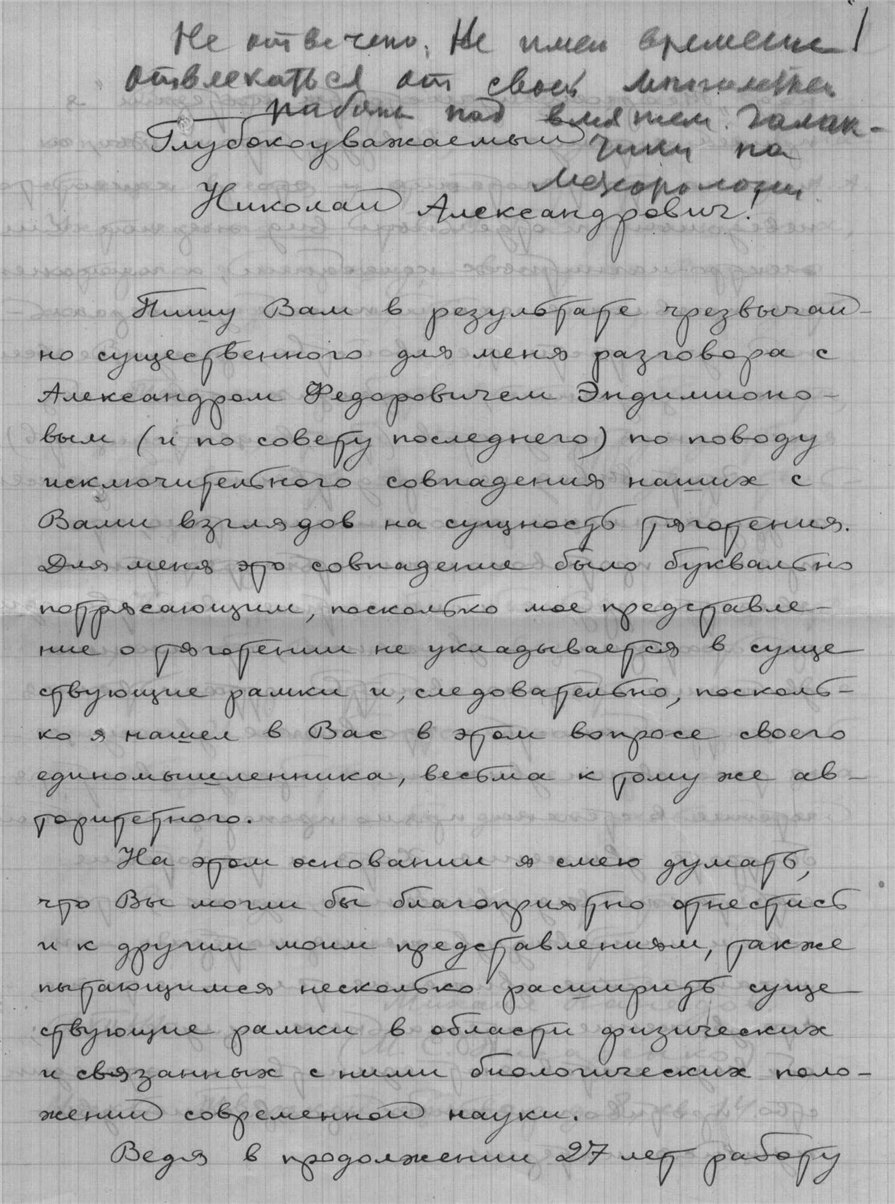 Не отвечено. Не имею времени!
отвлекаться от своей многолетней
работы над влиянием галак-
тики на
Глубокоуважаемый
Николай Александрович!
Пишу Вам в результате чрезвычай-
но существенного для меня разговора с
Александром Федоровичем Эндимионо-
вым (и по совету последнего) по поводу
исключительного совпадения наших с
Вами взглядов на сущность тяготения.
Для меня это совпадение было буквально
потрясающим, поскольку мое представле-
ние о тяготении не укладывается в суще
ствующие рамки и, следовательно, посколь-
ко я нашел в Вас в этом вопросе своего
единомышленника, весьма к тому же ав-
торитетного.
На этом основании я смею думать,
что Вы могли бы благоприятно отнестись
и к другим моим представлениям, также
пытающимся несколько расширить суще
ствующие рамки в области физических
и связанных с ними биологических поло-
жений современной науки.
Ведя в продолжении 27 лет работу